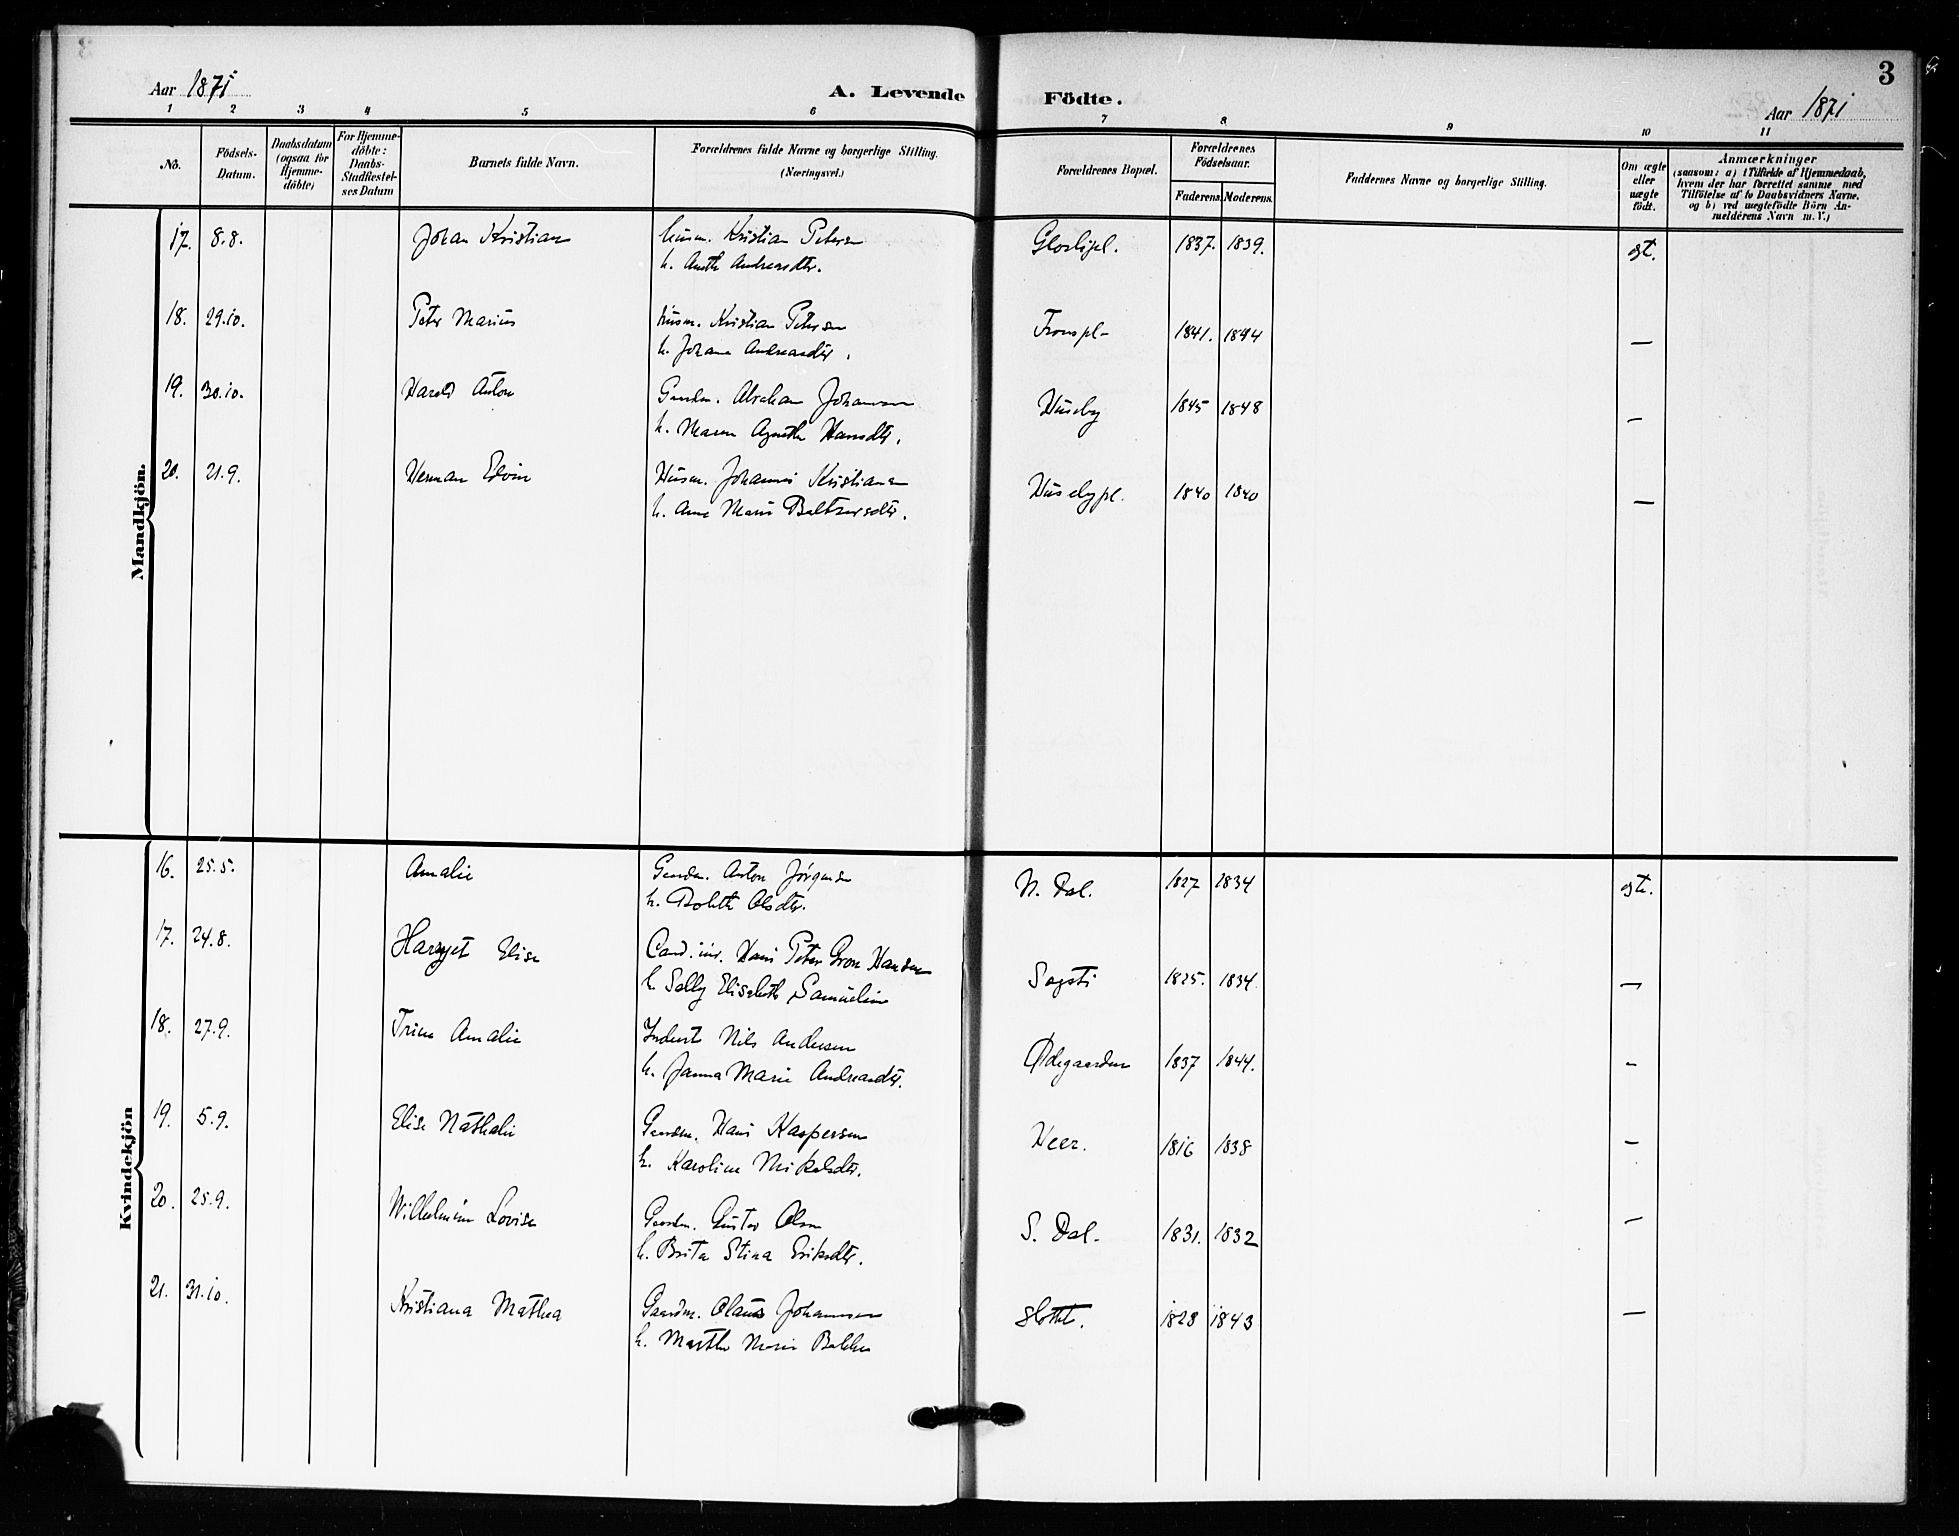 Aar 1871
A. Levende Födte.
Aar 1871
3
1 2 3 4 5 6 7 8 9 10 11
No.
Födsels-Datum.
Daabsdatum (ogsaa for Hjemme-döbte)
For Hjemme-döbte: Daabs-Stadfæstel-ses Datum
Barnets fulde Navn.
Forældrenes fulde Navne og borgerlige Stilling. (Næringsvei.)
Forældrenes Bopæl.
Forældrenes Födselsaar.
Faderens. Moderens.
Faddernes Navne og borgerlige Stilling.
Om ægte eller uægte födt.
Anmærkninger
(saasom: a) i Tilfælde af Hjemmedaab,
hvem der har forrettet samme med
Tilföielse af to Daabsvidners Navne.
og b) ved uægtefödte Börn An-
melderens Navn m. V.)
Mandkjön.
17. 8.8. Johan Kristian Husm. Kristian Petersen Gloslipl. 1837. 1839. egt.
h. Anethe Andreasdtr.
18. 29.10. Peter Marius Husm. Kristian Petersen Fronspl. 1841. 1844 —
h. Johane Andreasdtr.
19. 30.10. Harald Anton Gaardm. Abraham Johannesen Huseby 1845 1848 —
h. Maren Agnethe Hansdtr.
20. 21.9. Herman Edvin Husm. Johannes Kristiansen Husebypl. 1840 1840 —
h. Anne Marie Baltzersdtr.
Kvindekjön
16. 25.5. Amalie Gaardm. Anton Jørgensen N. Dal. 1827 1834 egte.
h. Bolette Olsdtr.
17. 24.8. Harryet Elise Cand. jur. Hans Peter Gron Hansen Sogsti 1825. 1834. —
h. Selly Elisabeth Samueline
18. 27.9. Trine Amalie Inderst Nils Andersen Ødegaarden 1837 1844. —
h. Janna Marie Andreasdtr.
19. 5.9. Elise Nathalie Gaardm. Hans Kaspersen Heer. 1816 1838 —
h. Karoline Mikelsdtr.
20. 25.9. Wilhelmine Lovise Gaardm. Gustav Olsen S. Dal. 1831. 1832 —
h. Brita Stina Eriksdtr.
21. 31.10. Kristiana Mathea Gaardm. Olaus Johannesen Slottet. 1828 1843 —
h. Marthe Marie Bakke